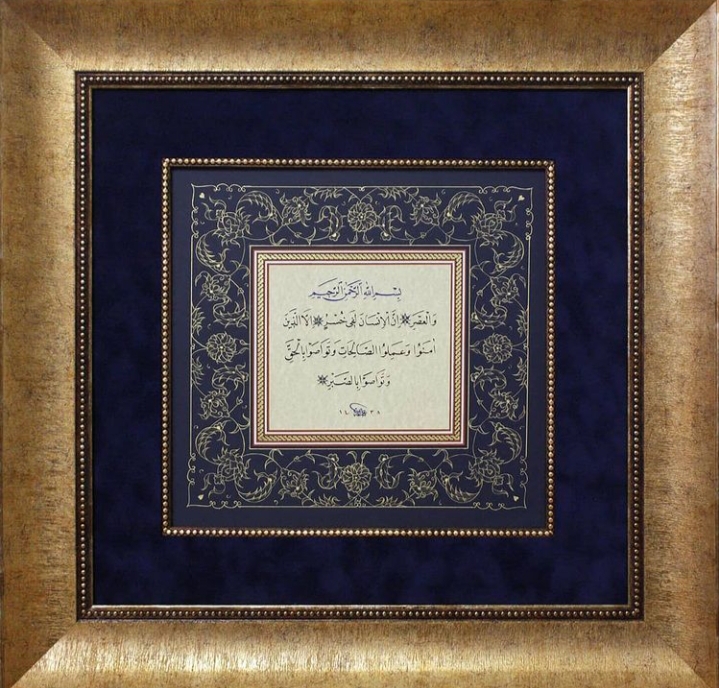 بِسْمِ اللهِ الرَّحْمٰنِ الرَّحِيمِ
وَالْعَصْرِ ۞ اِنَّ الْاِنْسَانَ لَفٖى خُسْرٍ ۞ اِلَّا الَّذٖينَ
اٰمَنُوا وَعَمِلُوا الصَّالِحَاتِ وَتَوَاصَوْا بِالْحَقِّ
وَتَوَاصَوْا بِالصَّبْرِ ۞
١٤٣٨